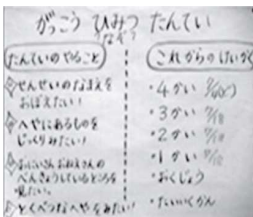 がっこう ひみつ たんてい
なぞ?
たんていのやること
せんせいのなまえを
おぼえたい!
へやにあるものを
じっくりみたい!
おにいさん おねえさんの
べんきょうしているところを
見たい。
とくべつなへやをみたい!
これからのけいかく
・4かい
・3かい
・2かい
・1かい
・おくじょう
・たいいくかん